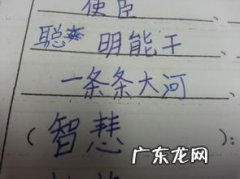 使臣
聪慧明能干
一条条大河
(智慧):
广东龙网